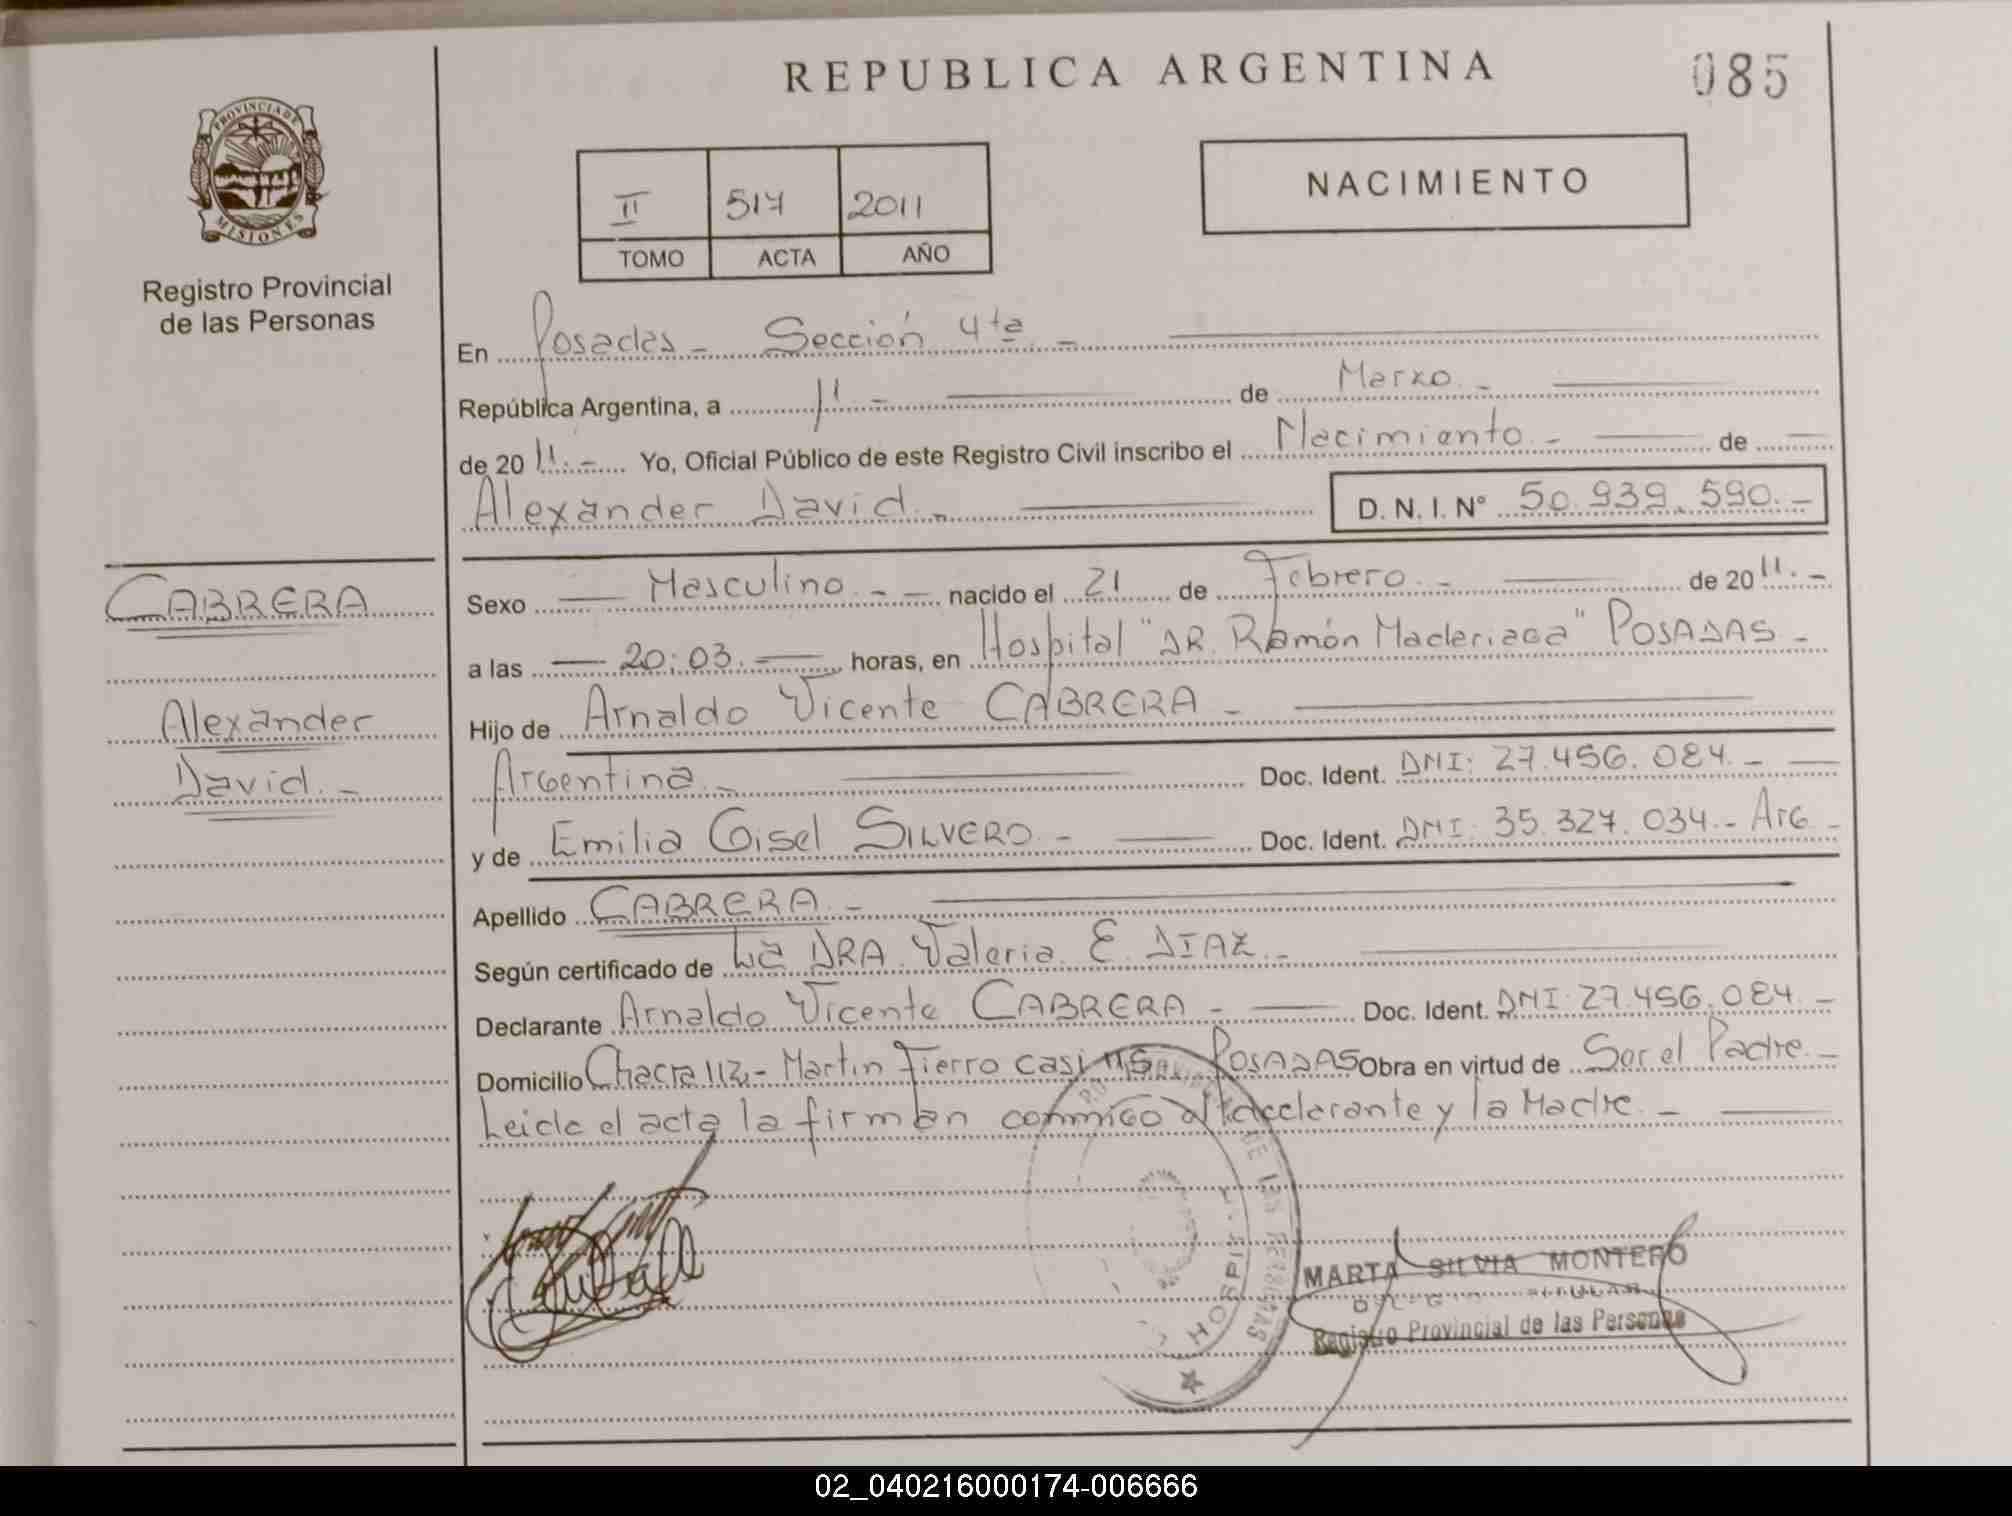 REPUBLICA ARGENTINA
085
PROVINCIA DE MISIONES
Registro Provincial
de las Personas
II 517 2011
TOMO ACTA AÑO
NACIMIENTO
En Posadas - Sección 4ta. -
República Argentina, a 11 - de Marzo. -
de 2011. - Yo, Oficial Público de este Registro Civil inscribo el Nacimiento. - de
Alexander David. - D. N. I. N° 50.939.590. -
CABRERA
Alexander
David. -
Sexo Masculino. - nacido el 21 de Febrero. - de 2011. -
a las 20:03. - horas, en Hospital "DR. Ramón Maderiaga" POSADAS -
Hijo de Arnaldo Vicente CABRERA -
Argentina. - Doc. Ident. DNI: 27.456.084. -
y de Emilia Gisel SILVERO. - Doc. Ident. DNI: 35.327.034. - Arg -
Apellido CABRERA. -
Según certificado de La DRA. Valeria E. DIAZ. -
Declarante Arnaldo Vicente CABRERA - Doc. Ident. DNI: 27.456.084. -
Domicilio Chacra 112, - Martin Fierro casi POSADAS Obra en virtud de Ser el Padre. -
Leida el acta la firman conmigo el declarante y la Madre. -
DE LAS PERSONAS
HOSPI
MARTA SILVIA MONTERO
TITULAR
Registro Provincial de las Personas
02_040216000174-006666